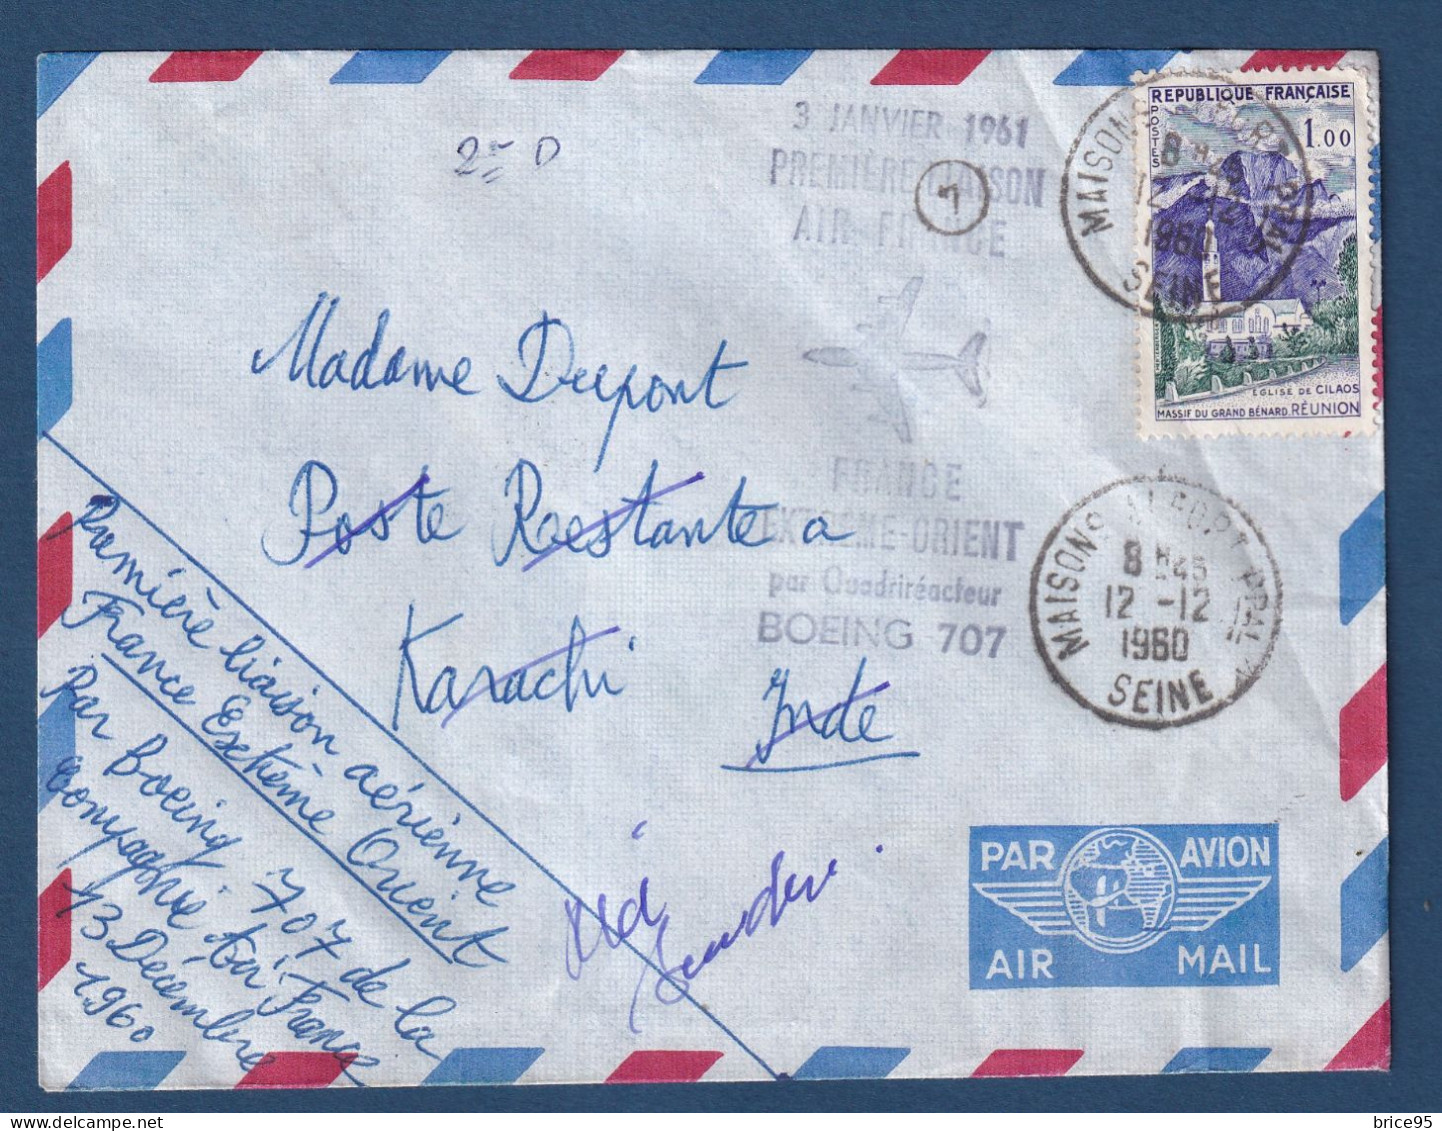 3 JANVIER 1961
PREMIÈRE LIAISON
AIR FRANCE
FRANCE
EXTRÊME-ORIENT
par Quadriréacteur
BOEING 707
REPUBLIQUE FRANÇAISE
POSTES
1.00
EGLISE DE CILAOS
MASSIF DU GRAND BÉNARD. RÉUNION
MAISONS ALFORT PPAL
8 H45
12 -12
1960
SEINE
Madame Dupont
Poste Restante a
Karachi Inde
Première liaison aérienne
France Extrême Orient
Par Boeing 707 de la
Compagnie Air France
13 Décembre
1960
MAISONS ALFORT PPAL
8 H45
12 -12
1960
SEINE
PAR AVION
AIR MAIL
brice95